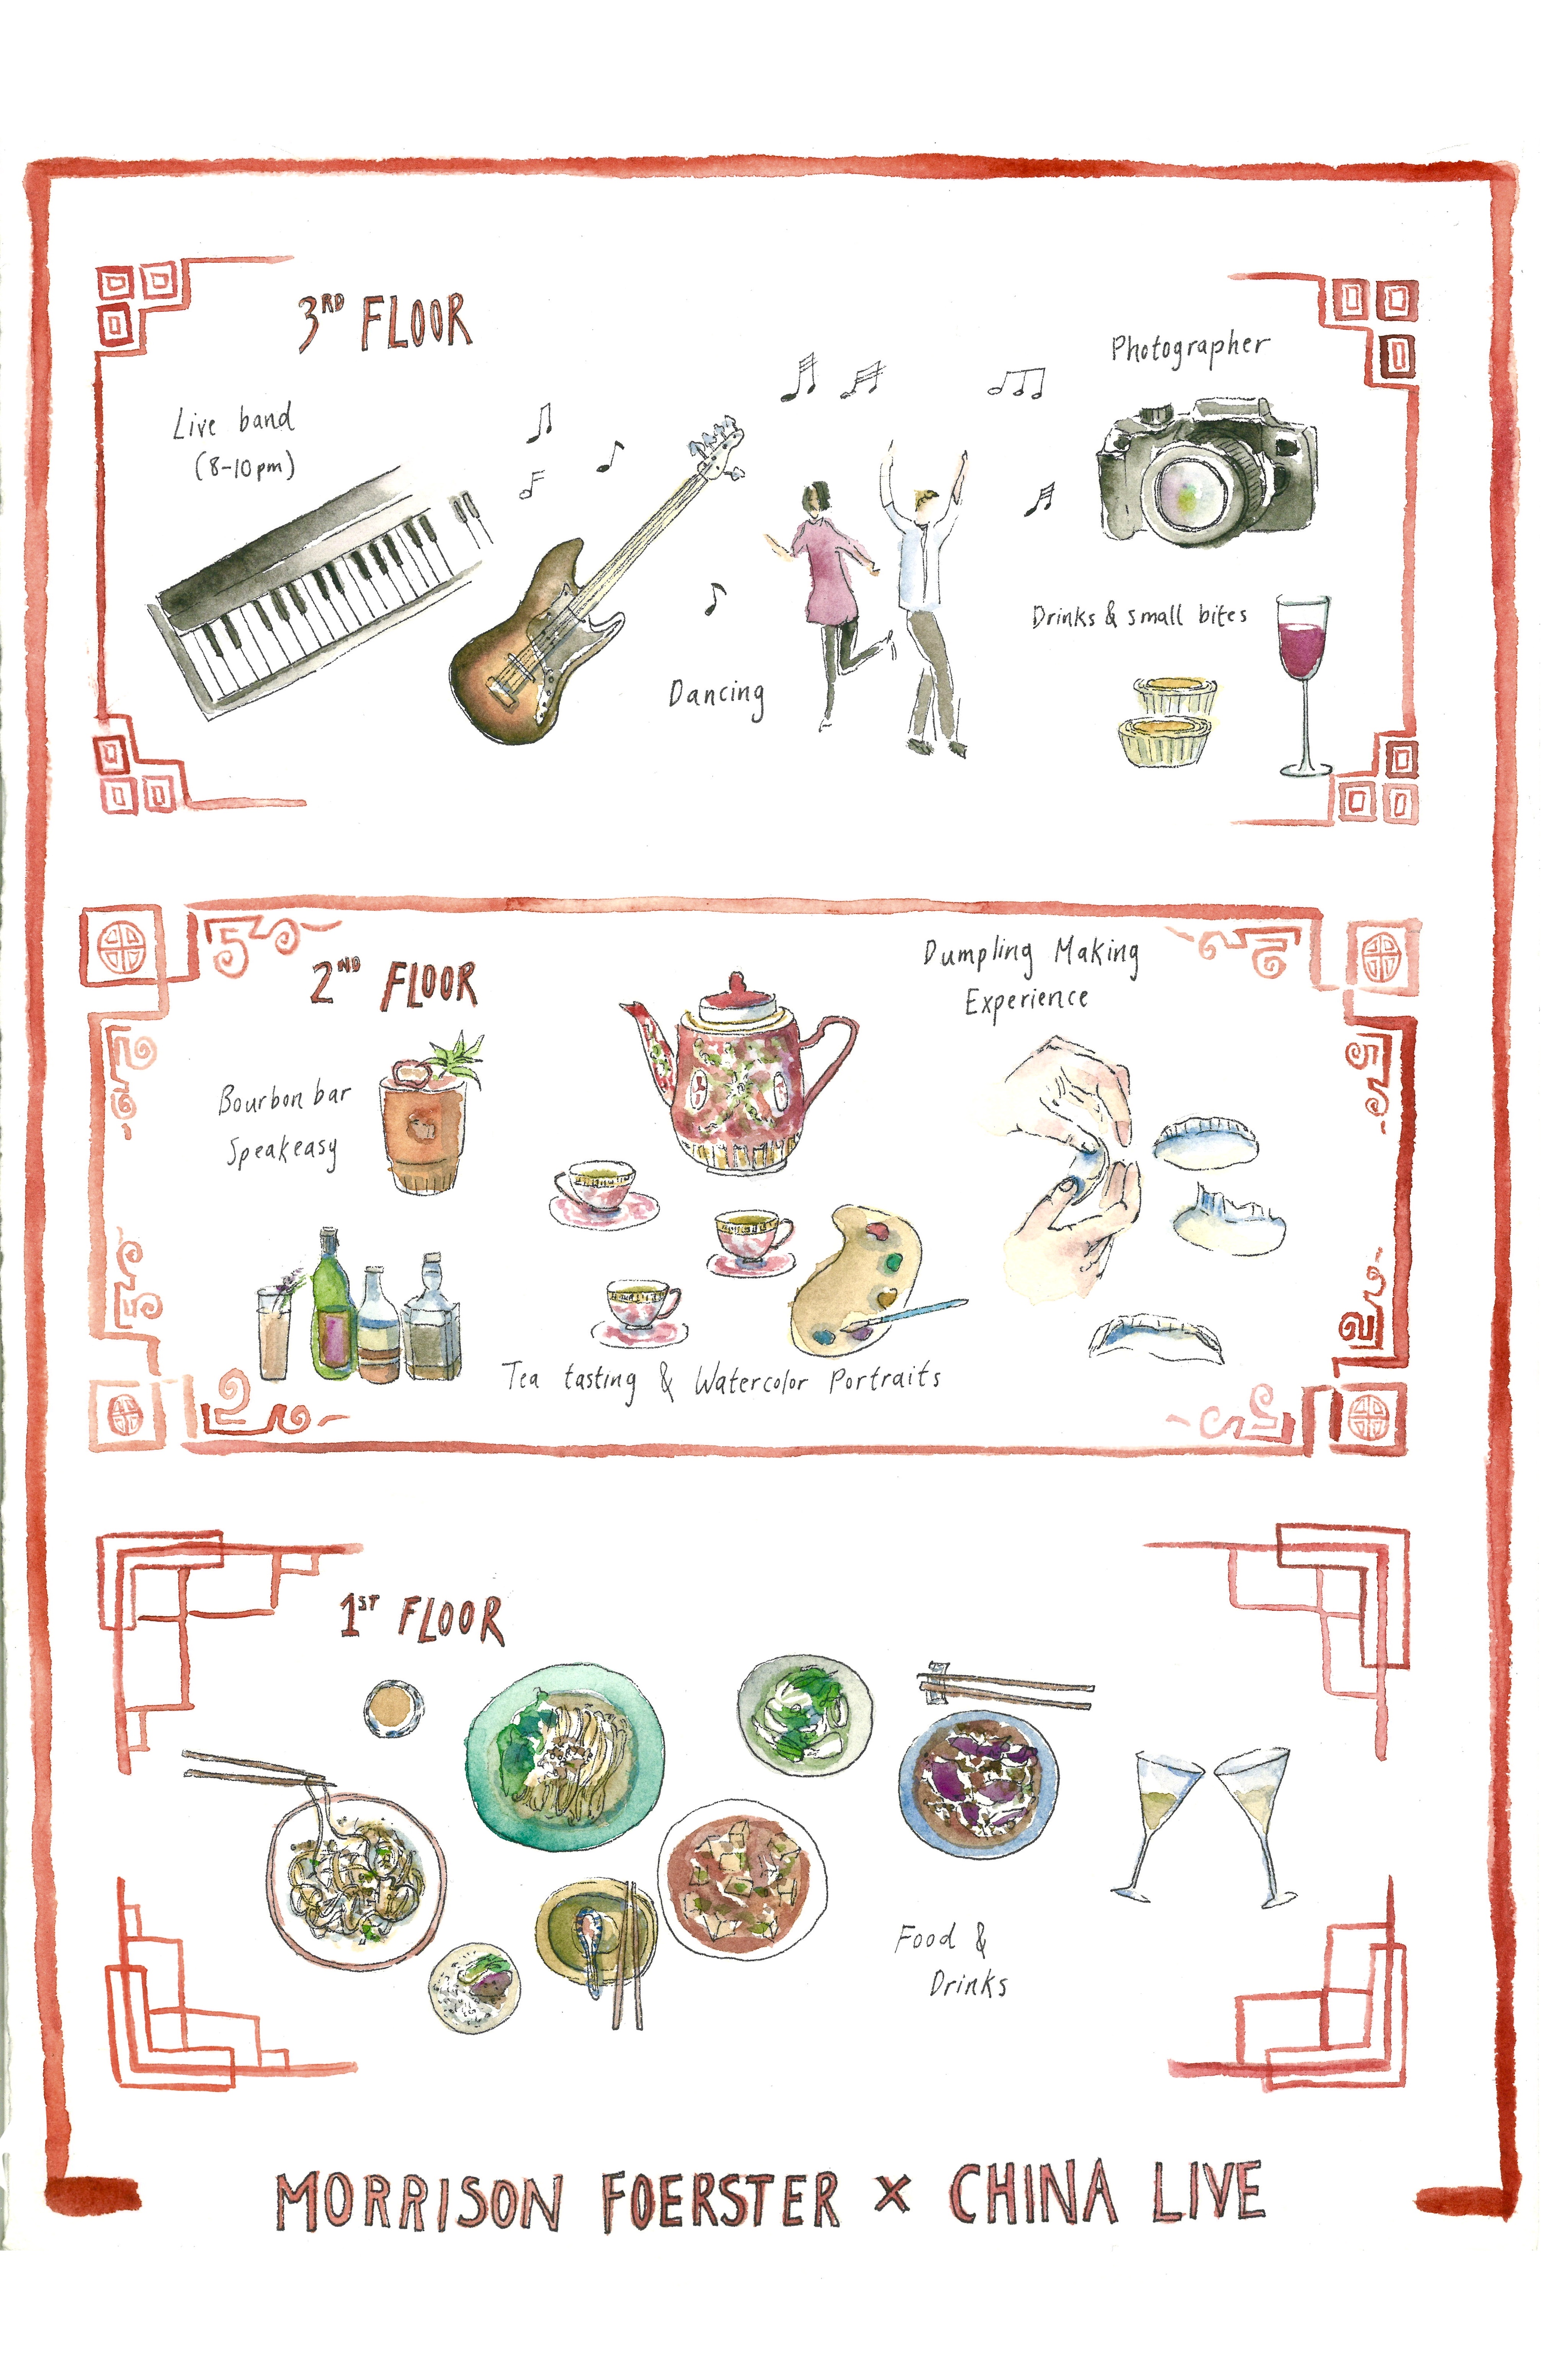 3RD FLOOR
Photographer
Live band
(8-10pm)
Drinks & small bites
Dancing
2ND FLOOR
Dumpling Making
Experience
Bourbon bar
Speakeasy
Tea tasting & Watercolor Portraits
1ST FLOOR
Food &
Drinks
MORRISON FOERSTER x CHINA LIVE